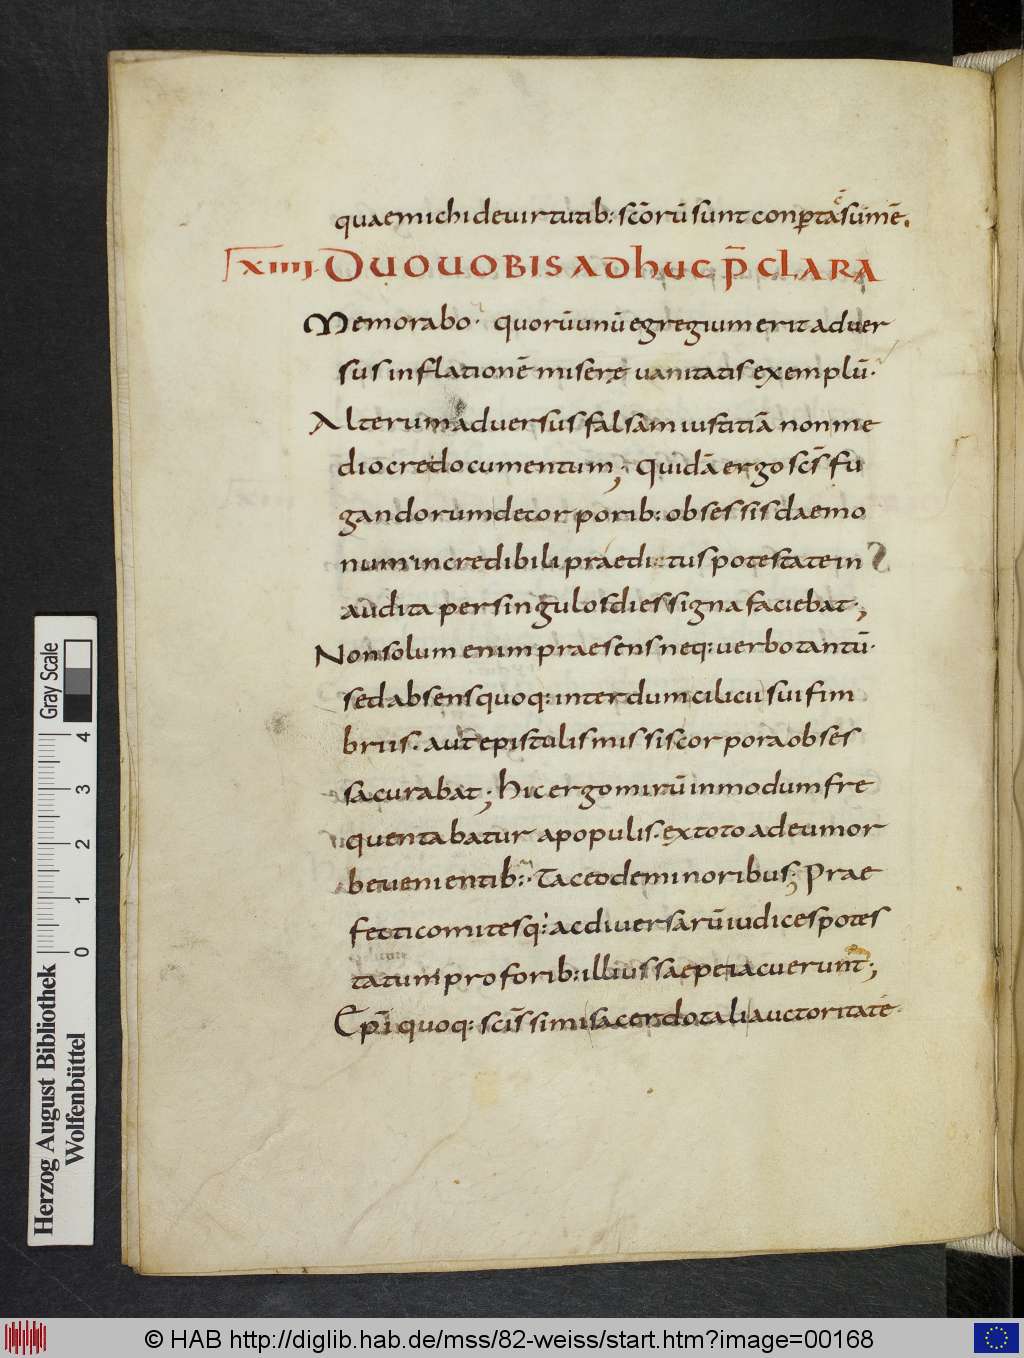 quae michi de uirtutib: scōrū sunt conperta sūmē.
xiiii. DUO UOBIS ADHUC P̄CLARA
Memorabo· quorū unū egregium erit aduer
sus inflationē miserę uanitatis exemplū·
Alterum aduersus falsam iustitiā non me
diocre documentum; Quidā ergo scs̄ fu
gandorum de corporib: obsessis daemo
num incredibili praeditus potestate in
audita per singulos dies signa faciebat;
Non solum enim praesens neq: uerbo tantū·
sed absens quoq: interdum cilicii sui fim
briis· aut epistulis missis corpora obses
sa curabat; hic ergo mirū in modum fre
quentabatur a populis· ex toto ad eum or
be uenientib:· Taceo de minoribus; Prae
fecti comitesq: ac diuersarū iudices potes
tatum pro forib: illius saepe iacuerunt;
Ep̄i quoq: scīssimi sacerdotali auctoritate·
Gray Scale
4
3
2
1
0
Herzog August Bibliothek
Wolfenbüttel
© HAB http://diglib.hab.de/mss/82-weiss/start.htm?image=00168